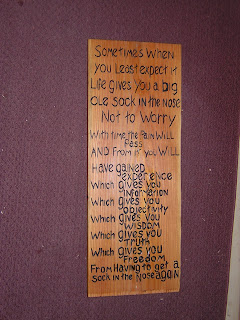 Sometimes when
you Least expect it
Life gives you a big
ole sock in the nose
Not to worry
With time the Pain WILL
Pass
AND From it you WILL
Have gained
experience
Which gives you
information
Which gives you
objectivity
Which gives you
WISDOM
Which gives you
TRUTH
Which gives you
Freedom
From Having to get a
sock in the Nose AGAIN